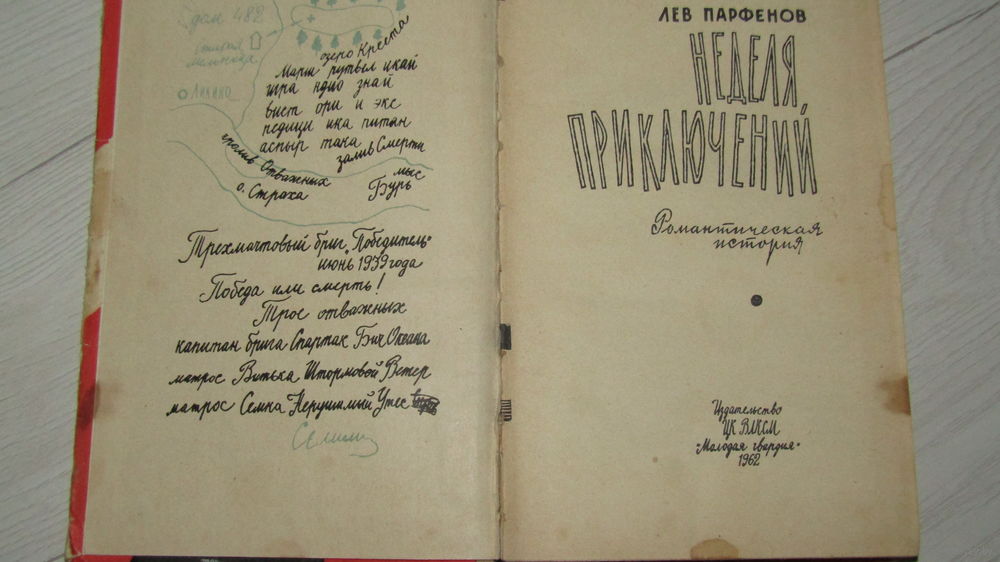 дом 482
мельница
Ликино
озеро Креста
Марш рутвел икай
шра ндио знай
вист ори и экс
педици ика питан
аспыр така
залив Смерти
пролив Отважных
о. Страха
мыс
Бурь
Трехмачтовый бриг „Победитель"
июнь 1939 года
Победа или смерть!
Трое отважных
капитан брига Спартак Бич Океана
матрос Витька Штормовой Ветер
матрос Семка Нерушимый Утес
ЛЕВ ПАРФЕНОВ
НЕДЕЛЯ
ПРИКЛЮЧЕНИЙ
Романтическая
история
Издательство
ЦК ВЛКСМ
„Молодая гвардия"
1962